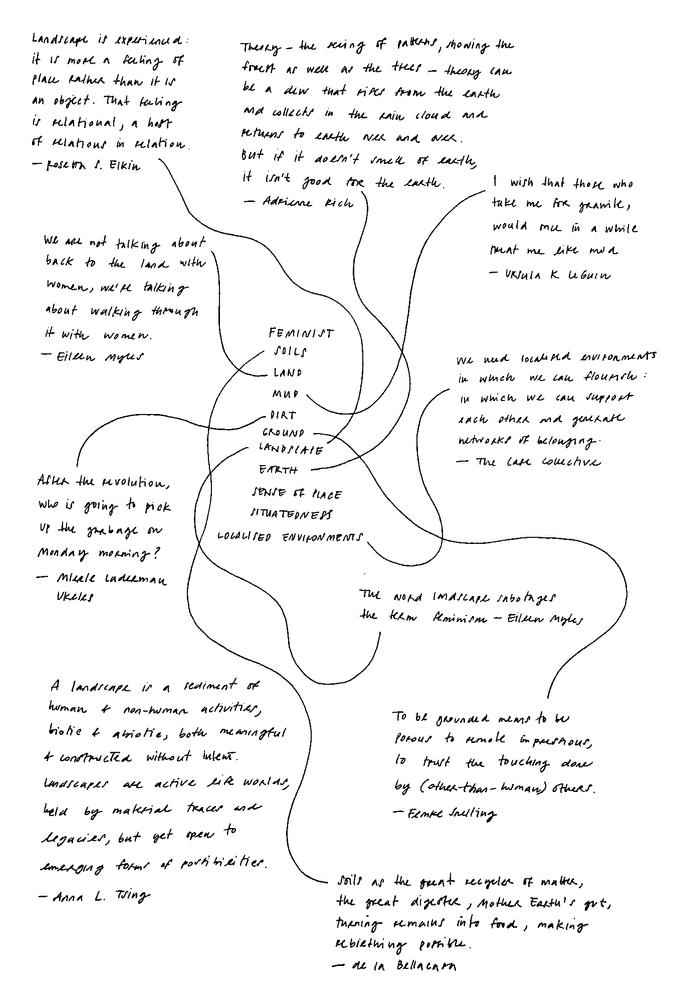 Landscape is experienced:
it is more a feeling of
place rather than it is
an object. That feeling
is relational, a host
of relations in relation.
— Rosetta S. Elkin
Theory — the seeing of patterns, showing the
forest as well as the trees — theory can
be a dew that rises from the earth
and collects in the rain cloud and
returns to earth over and over.
But if it doesn't smell of earth,
it isn't good for the earth.
— Adrienne Rich
I wish that those who
take me for granite,
would once in a while
treat me like mud
— Ursula K. LeGuin
We are not talking about
back to the land with
women, we're talking
about walking through
it with women.
— Eileen Myles
FEMINIST
SOILS
LAND
MUD
DIRT
GROUND
LANDSCAPE
EARTH
SENSE OF PLACE
SITUATEDNESS
LOCALISED ENVIRONMENTS
We need localised environments
in which we can flourish:
in which we can support
each other and generate
networks of belonging.
— The Care Collective
After the revolution,
who is going to pick
up the garbage on
Monday morning?
— Mierle Laderman
Ukeles
The word landscape sabotages
the term feminism — Eileen Myles
A landscape is a sediment of
human & non-human activities,
biotic & abiotic, both meaningful
& constructed without intent.
Landscapes are active life worlds,
held by material traces and
legacies, but yet open to
emerging forms of possibilities.
— Anna L. Tsing
To be grounded means to be
porous to remote impressions,
to trust the touching done
by (other-than-human) others.
— Femke Snelting
Soils as the great recycler of matter,
the great digester, Mother Earth's gut,
turning remains into food, making
rebirthing possible.
— de la Bellacasa